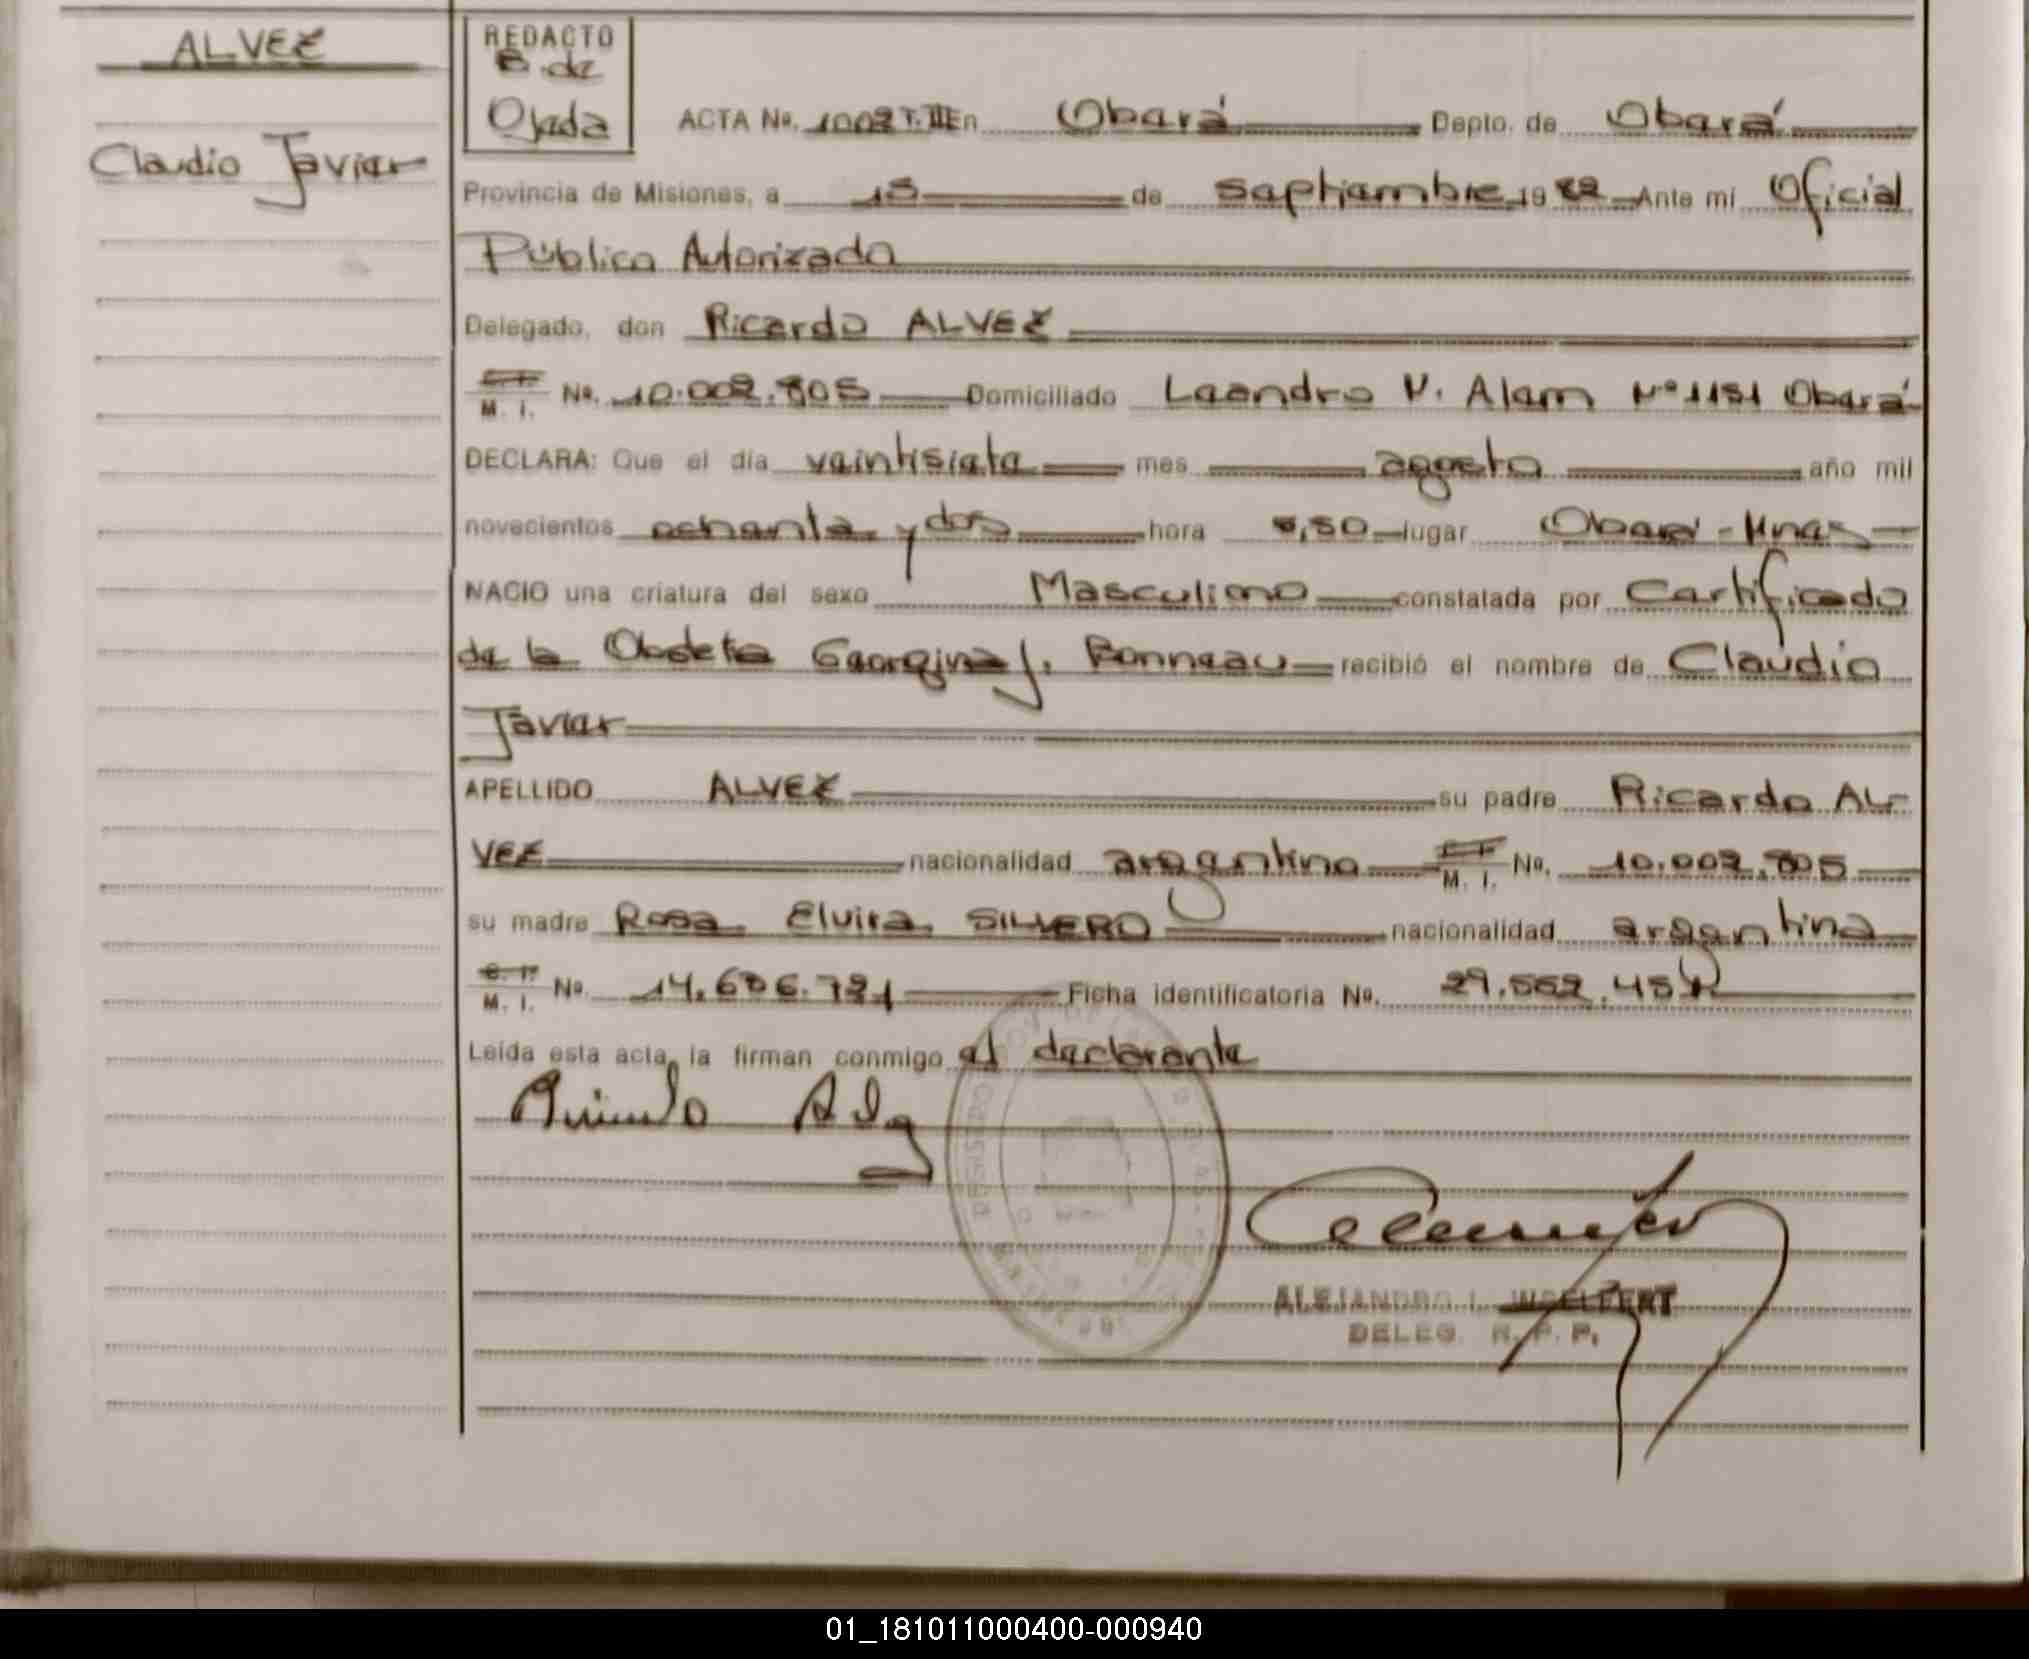 ALVEZ
Claudio Javier
REDACTO
B. de
Ojeda
ACTA No. 1002 T. III En Oberá Depto. de Oberá
Provincia de Misiones, a 15 de septiembre 19 82 Ante mí Oficial
Público Autorizado
Delegado, don Ricardo ALVEZ
C. I. M. I. No. 10.002.805 Domiciliado Leandro N. Alem Nº 1151 Oberá
DECLARA: Que el día veintisiete mes agosto año mil
novecientos ochenta y dos hora lugar Oberá - Mnes
NACIO una criatura del sexo Masculino constatada por Certificado
de la Obstetra Georgina J. Bonneau recibió el nombre de Claudio
Javier
APELLIDO ALVEZ su padre Ricardo AL-
VEZ nacionalidad argentino C. I. M. I. No. 10.002.805
su madre Rosa Elvira SILVERO nacionalidad argentina
C. I. M. I. No. Ficha identificatoria No.
Leída esta acta, la firman conmigo el declarante
ALEJANDRO I. WOELFERT
DELEG. R. P. P.
01_181011000400-000940